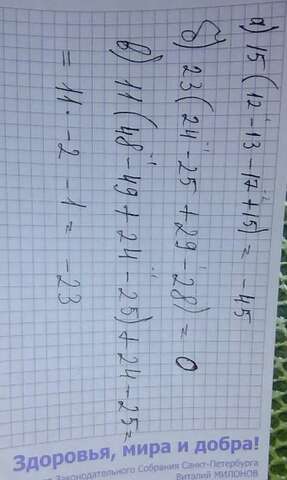 а) 15(12-13-17+15) = -45
б) 23(24-25+29-28) = 0
в) 11(48-49+24-25)+24-25=
= 11·-2 -1 = -23
Здоровья, мира и добра!
Законодательного Собрания Санкт-Петербурга
Виталий МИЛОНОВ